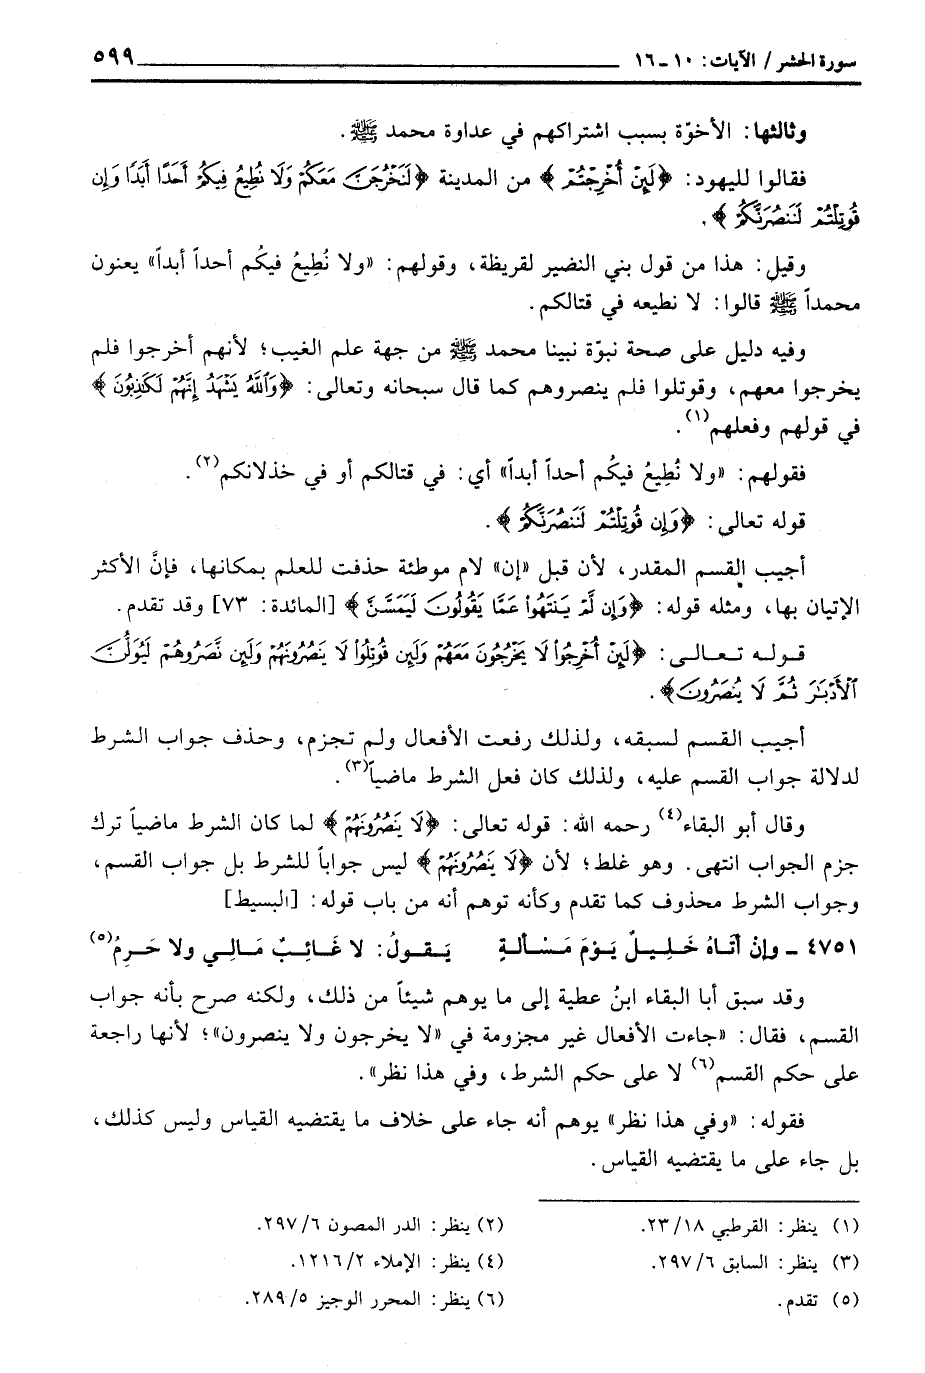 سورة الحشر / الآيات: ١٠ - ١٦ ٥٩٩
وثالثها: الأخوّة بسبب اشتراكهم في عداوة محمد ﷺ.
فقالوا لليهود: ﴿لَئِنْ أُخْرِجْتُمْ﴾ من المدينة ﴿لَنَخْرُجَنَّ مَعَكُمْ وَلَا نُطِيعُ فِيكُمْ أَحَدًا أَبَدًا وَإِن
قُوتِلْتُمْ لَنَنصُرَنَّكُمْ﴾.
وقيل: هذا من قول بني النضير لقريظة، وقولهم: «ولا نُطِيعُ فيكُم أحداً أبداً» يعنون
محمداً ﷺ قالوا: لا نطيعه في قتالكم.
وفيه دليل على صحة نبوّة نبينا محمد ﷺ من جهة علم الغيب؛ لأنهم أخرجوا فلم
يخرجوا معهم، وقوتلوا فلم ينصروهم كما قال سبحانه وتعالى: ﴿وَٱللَّهُ يَشْهَدُ إِنَّهُمْ لَكَٰذِبُونَ﴾
في قولهم وفعلهم(١).
فقولهم: «ولا نُطِيعُ فيكُم أحداً أبداً» أي: في قتالكم أو في خذلانكم(٢).
قوله تعالى: ﴿وَإِن قُوتِلْتُمْ لَنَنصُرَنَّكُمْ﴾.
أجيب القسم المقدر، لأن قبل «إن» لام موطئة حذفت للعلم بمكانها، فإنَّ الأكثر
الإتيان بها، ومثله قوله: ﴿وَإِن لَّمْ يَنتَهُوا۟ عَمَّا يَقُولُونَ لَيَمَسَّنَّ﴾ [المائدة: ٧٣] وقد تقدم.
قوله تعالى: ﴿لَئِنْ أُخْرِجُوا۟ لَا يَخْرُجُونَ مَعَهُمْ وَلَئِن قُوتِلُوا۟ لَا يَنصُرُونَهُمْ وَلَئِن نَّصَرُوهُمْ لَيُوَلُّنَّ
ٱلْأَدْبَٰرَ ثُمَّ لَا يُنصَرُونَ﴾.
أجيب القسم لسبقه، ولذلك رفعت الأفعال ولم تجزم، وحذف جواب الشرط
لدلالة جواب القسم عليه، ولذلك كان فعل الشرط ماضياً(٣).
وقال أبو البقاء(٤) رحمه الله: قوله تعالى: ﴿لَا يَنصُرُونَهُمْ﴾ لما كان الشرط ماضياً ترك
جزم الجواب انتهى. وهو غلط؛ لأن ﴿لَا يَنصُرُونَهُمْ﴾ ليس جواباً للشرط بل جواب القسم،
وجواب الشرط محذوف كما تقدم وكأنه توهم أنه من باب قوله: [البسيط]
٤٧٥١ - وإنْ أتَاهُ خَلِيلٌ يَوْمَ مَسْألةٍ يَقُولُ: لا غَائِبٌ مَالِي ولا حَرِمُ(٥)
وقد سبق أبا البقاء ابنُ عطية إلى ما يوهم شيئاً من ذلك، ولكنه صرح بأنه جواب
القسم، فقال: «جاءت الأفعال غير مجزومة في «لا يخرجون ولا ينصرون»؛ لأنها راجعة
على حكم القسم(٦) لا على حكم الشرط، وفي هذا نظر».
فقوله: «وفي هذا نظر» يوهم أنه جاء على خلاف ما يقتضيه القياس وليس كذلك،
بل جاء على ما يقتضيه القياس.
(١) ينظر: القرطبي ١٨/ ٢٣. (٢) ينظر: الدر المصون ٦/ ٢٩٧.
(٣) ينظر: السابق ٦/ ٢٩٧. (٤) ينظر: الإملاء ٢/ ١٢١٦.
(٥) تقدم. (٦) ينظر: المحرر الوجيز ٥/ ٢٨٩.